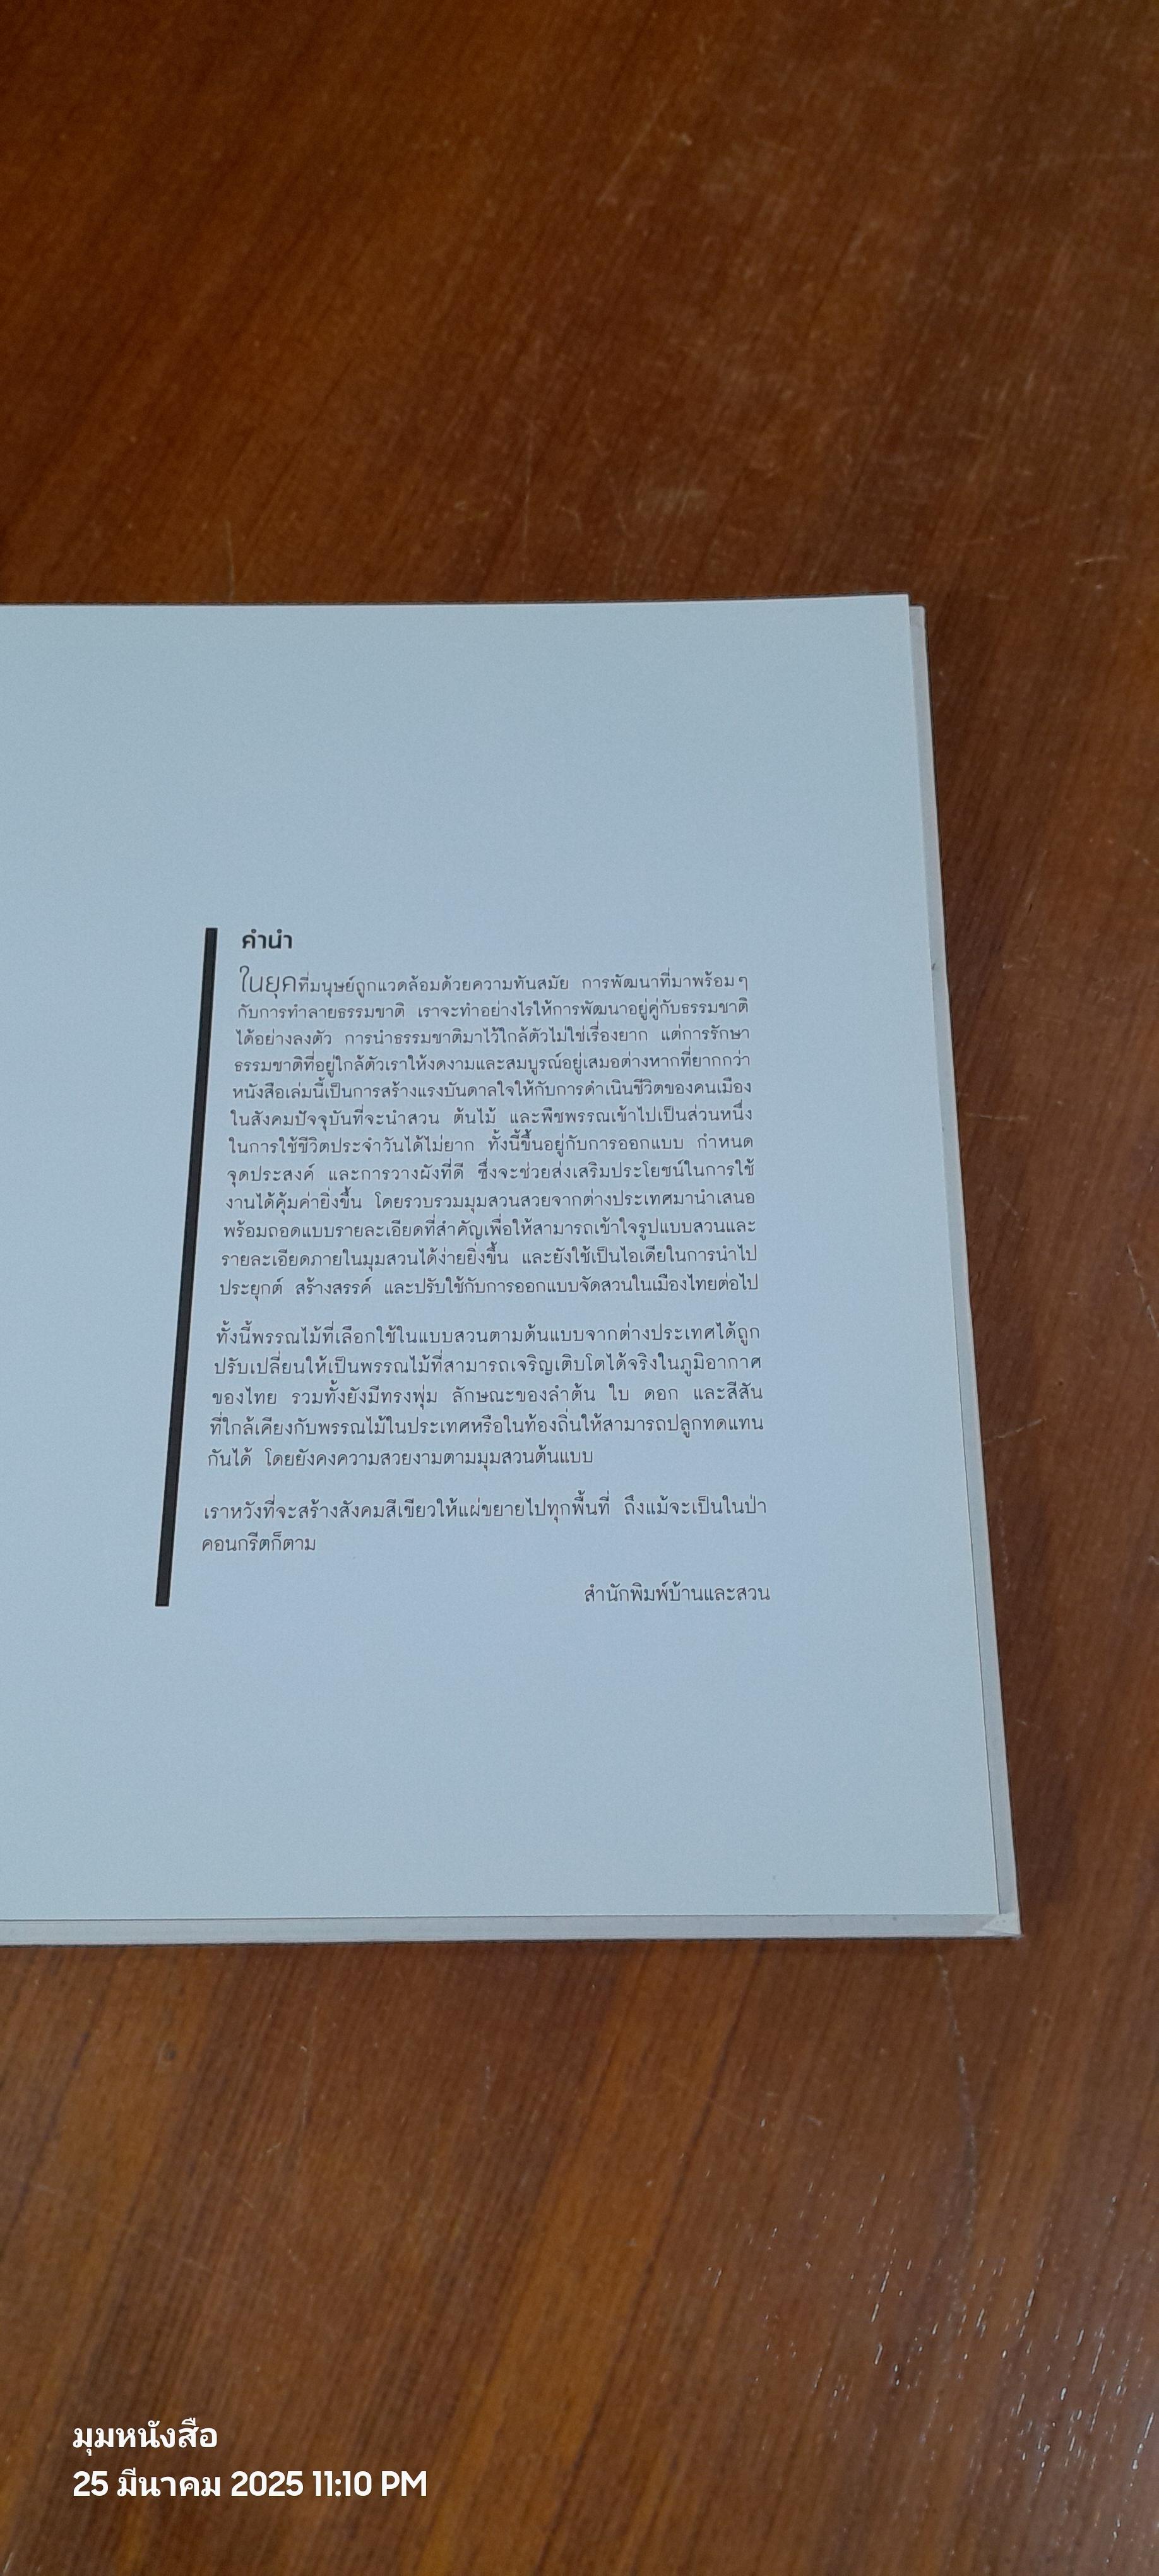 คำนำ
ในยุคที่มนุษย์ถูกแวดล้อมด้วยความทันสมัย การพัฒนาที่มาพร้อมๆ
กับการทำลายธรรมชาติ เราจะทำอย่างไรให้การพัฒนาอยู่คู่กับธรรมชาติ
ได้อย่างลงตัว การนำธรรมชาติมาไว้ใกล้ตัวไม่ใช่เรื่องยาก แต่การรักษา
ธรรมชาติที่อยู่ใกล้ตัวเราให้งดงามและสมบูรณ์อยู่เสมอต่างหากที่ยากกว่า
หนังสือเล่มนี้เป็นการสร้างแรงบันดาลใจให้กับการดำเนินชีวิตของคนเมือง
ในสังคมปัจจุบันที่จะนำสวน ต้นไม้ และพืชพรรณเข้าไปเป็นส่วนหนึ่ง
ในการใช้ชีวิตประจำวันได้ไม่ยาก ทั้งนี้ขึ้นอยู่กับการออกแบบ กำหนด
จุดประสงค์ และการวางผังที่ดี ซึ่งจะช่วยส่งเสริมประโยชน์ในการใช้
งานได้คุ้มค่ายิ่งขึ้น โดยรวบรวมมุมสวนสวยจากต่างประเทศมานำเสนอ
พร้อมถอดแบบรายละเอียดที่สำคัญเพื่อให้สามารถเข้าใจรูปแบบสวนและ
รายละเอียดภายในมุมสวนได้ง่ายยิ่งขึ้น และยังใช้เป็นไอเดียในการนำไป
ประยุกต์ สร้างสรรค์ และปรับใช้กับการออกแบบจัดสวนในเมืองไทยต่อไป
ทั้งนี้พรรณไม้ที่เลือกใช้ในแบบสวนตามต้นแบบจากต่างประเทศได้ถูก
ปรับเปลี่ยนให้เป็นพรรณไม้ที่สามารถเจริญเติบโตได้จริงในภูมิอากาศ
ของไทย รวมทั้งยังมีทรงพุ่ม ลักษณะของลำต้น ใบ ดอก และสีสัน
ที่ใกล้เคียงกับพรรณไม้ในประเทศหรือในท้องถิ่นให้สามารถปลูกทดแทน
กันได้ โดยยังคงความสวยงามตามมุมสวนต้นแบบ
เราหวังที่จะสร้างสังคมสีเขียวให้แผ่ขยายไปทุกพื้นที่ ถึงแม้จะเป็นในป่า
คอนกรีตก็ตาม
สำนักพิมพ์บ้านและสวน
มุมหนังสือ
25 มีนาคม 2025 11:10 PM